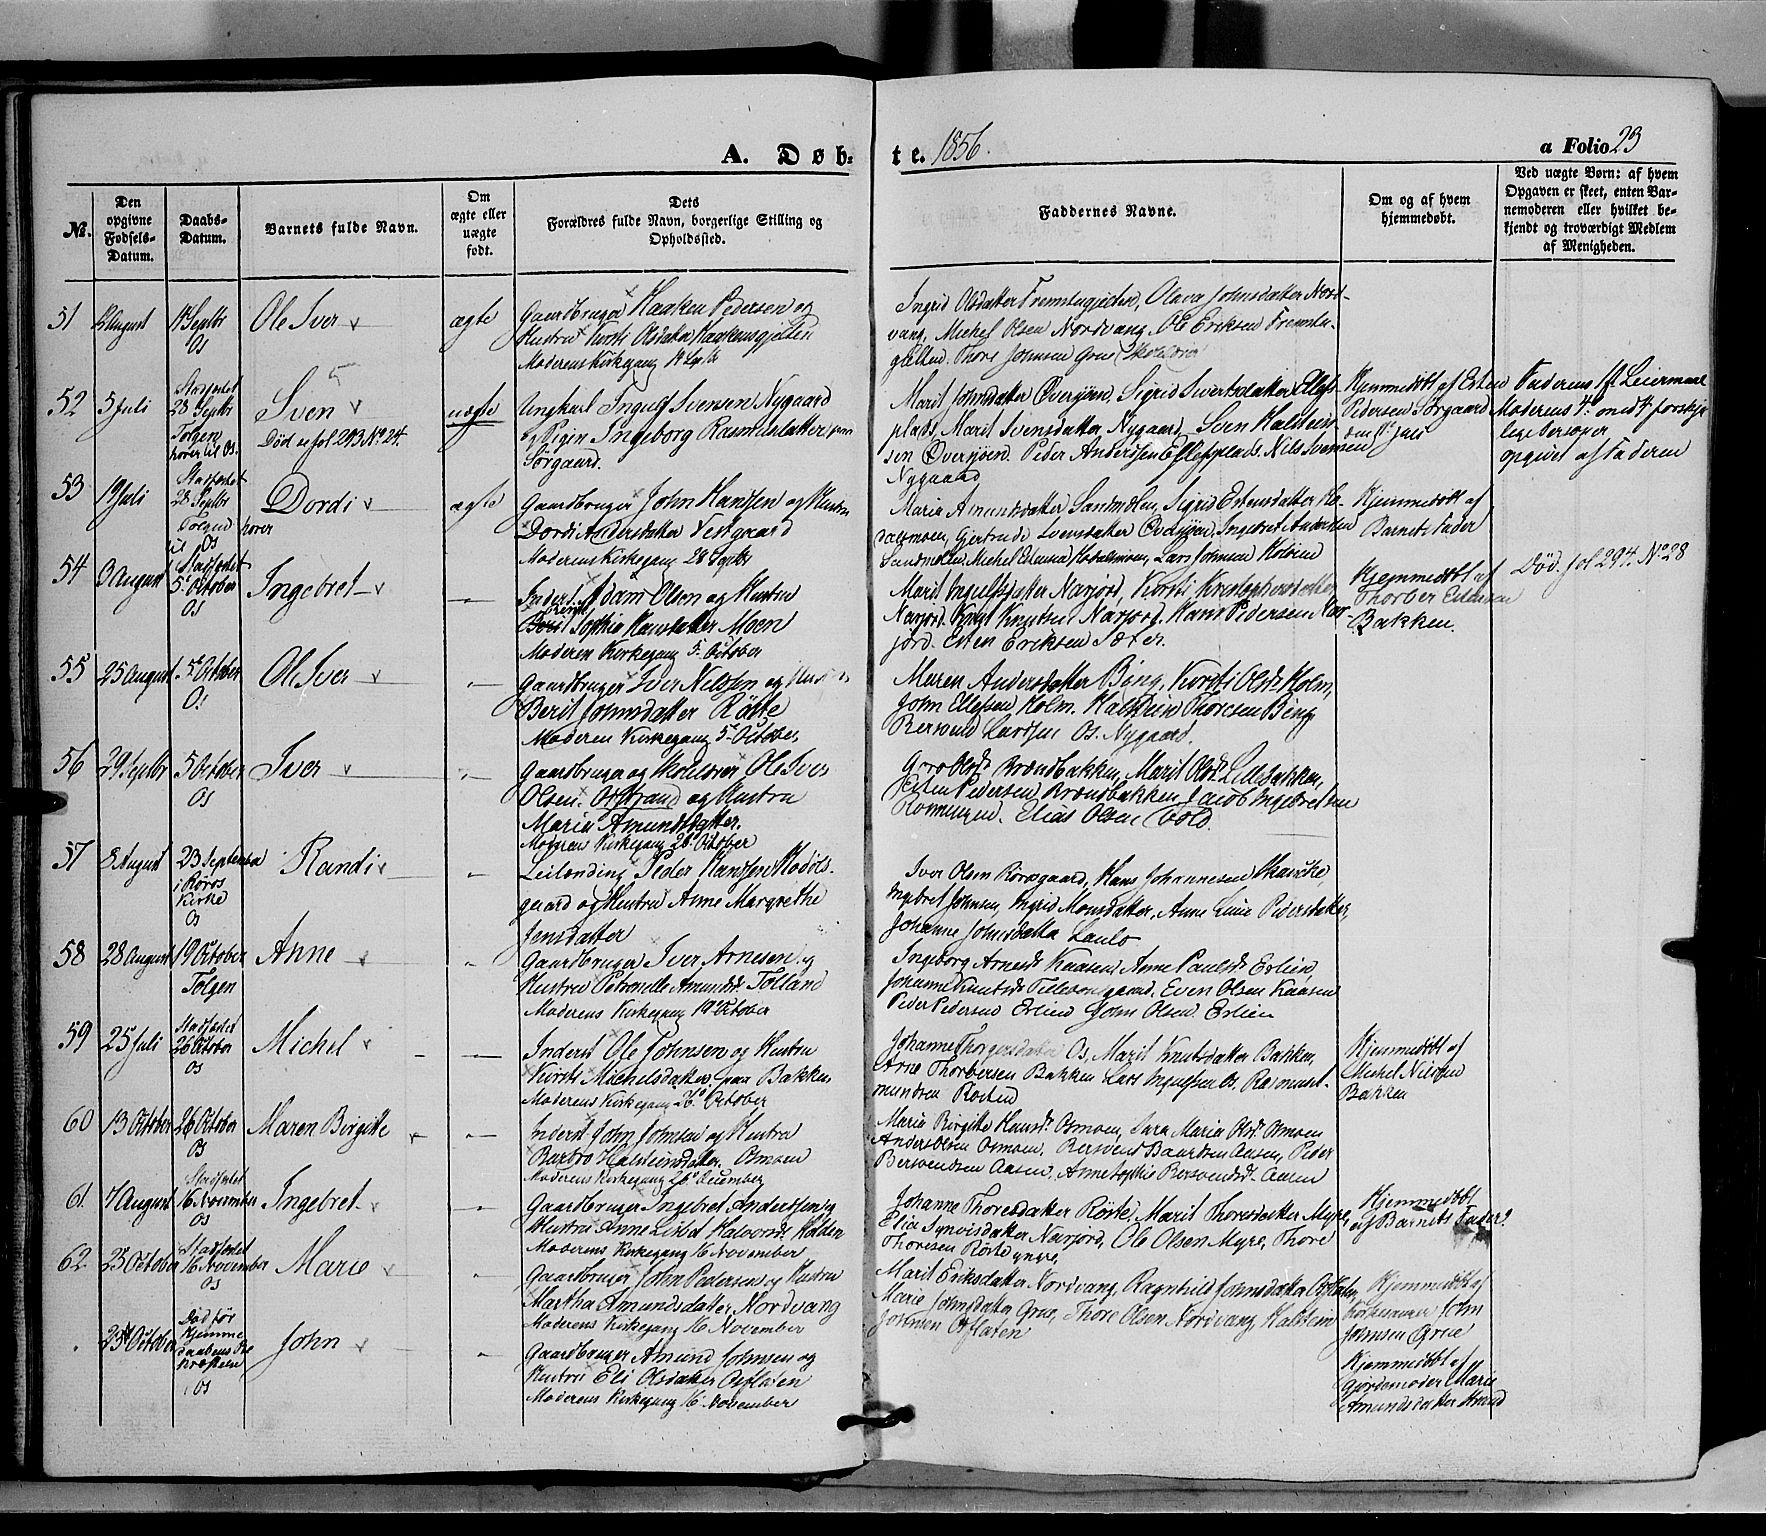 A. Døb-
te. 1856.
a Folio 23
No.
Den opgivne Fødsels-Datum.
Daabs-Datum.
Barnets fulde Navn.
Om ægte eller uægte født.
Dets Forældres fulde Navn, borgerlige Stilling og Opholdssted.
Faddernes Navne.
Om og af hvem hjemmedøbt.
Ved uægte Børn: af hvem Opgaven er skeet, enten Barnemoderen eller hvilket bekjendt og troværdigt Medlem af Menigheden.
51
August
14 Septbr
Os
Ole Iver
ægte
Gaardbruger Haaken Pedersen og
Hustru Kirsti Olsdatter
Moderens Kirkegang 14 Septbr
Ingrid Olsdatter Olava Johnsdatter Nord-
vang, Michel Olsen Nordvang, Ole Eriksen
Thore Johnsen
52
5 Juli
Stadfæstet
28 Septbr
Tolgen
hører til Os.
Sven
Død se fol. 293 No 24.
uægte
Ungkarl Ingulf Svensen Nygaard
og Pigen Ingeborg Rasmusdatter paa
Sørgaard.
Marit Johnsdatter Øversjøen, Sigrid Sivertsdatter Ellefs-
plads, Marit Svensdatter Nygaard, Sven Halstein-
sen Øversjøen. Peder Andersen Ellefsplads, Nils Svensen
Nygaard
Hjemmedøbt af Esten
Pedersen Sørgaard
den Juli
Faderens 1st Leiermaal
Moderens 4de med 4 forskjel-
lige Personer
opgivet af Faderen
53
19 Juli
Stadfæstet
28 Septbr
Tolgen hører
til Os
Dordi
ægte
Gaardbruger John Hansen og Hustru
Dordi Pedersdatter Vestgaard
Moderens Kirkegang 28 Septbr
Maria Amundsdatter Sandmælen, Sigrid Estensdatter Ho-
dalsmoen, Gertrude Svensdatter Øversjøen, Ingebret Andersen
Sandmælen, Michel Hodalsmoen, Lars Johnsen
Hjemmedøbt af
Barnets Fader
54
9 August
Stadfæstet
5 October
Os
Ingebret
Inderst Adam Olsen og Hustru
Berit Sophia Hansdatter Moen
Moderen Kirkegang 5 October
Marit Ingulfsdatter Narjord, Kirsti Kristophersdatter
Narjord. Knut Knutsen Narjord, Hans Pedersen Nar-
jord. Esten Eriksen Sæter.
Hjemmedøbt af
Thorber Estensen
Bakken.
Død. fol 294. No 28
55
25 August
5 October
Os
Ole Iver
Gaardbruger Iver Nilssen og Hustru
Berit Johnsdatter Røste
Moderen Kirkegang 5 October
Maren Andersdatter Bing, Kirsti Olsdr Holm,
John Ellefsen Holm. Halstein Thoresen Bing
Bersvend Larssen Os. Nygaard.
56
29 Septbr
5 October
Os
Iver
Gaardbruger og Skolelærer Ole Iver
Olsen Osstrand og Hustru
Maria Amundsdatter.
Moderens Kirkegang 26 October
Goro Olsdr Brændbakken, Marit Olsdr Lillebakken,
Esten Pedersen Brændbakken, Jacob Ingebretsen
Elias Olsen Vold.
57
8 August
23 September
i Røros
Kirke
Os
Randi
Leilænding Peder Hanssen Hodøls-
gaard og Hustru Anne Margrethe
Jensdatter
Iver Olsen Rørosgaard, Hans Johannesen Skancke,
Ingebret Johnsen, Ingrid Monsdatter, Anne Line Pedersdatter,
Johanne Johnsdatter
58
28 August
19 October
Tolgen
Anne
Gaardbruger Iver Arnesen og
Hustru Petronelle Amundsdr Tolland
Moderens Kirkegang 19 October
Ingeborg Arnesdr Kaasen, Anne Paulsdr Erlien,
Johanne Knutsdr Even Olsen Kaasen
Peder Pedersen Erlien John Olsen Erlien
59
25 Juli
Stadfæstet
26 October
Os
Michel
Inderst Ole Johnsen og Hustru
Kirsti Michelsdatter paa Bakken
Moderens Kirkegang 26 October
Johanne Thorgersdatter Os, Marit Knutsdatter Bakken,
Arne Thorbersen Bakken Lars Ingulfsen Os, Rasmus
Hjemmedøbt af
Michel Nilssen
Bakken
60
13 October
26 October
Os
Maren Birgitte
Inderst John Johnsen og Hustru
Barbro Halsteinsdatter Osmoen
Moderens Kirkegang 26 December
Maria Birgitte Hansdr Osmoen, Sara Maria Olsdr Osmoen
Anders Olsen Osmoen, Bersvend Baardsen Aasen, Peder
Bersvendsen Aasen, Anne Sophie Bersvendsdr Aasen
61
7 August
Stadfæstet
16 November
Os
Ingebret
Gaardbruger Ingebret Anderssen og
Hustru Anne Lisbet Halvorsdr
Moderens Kirkegang 16 November
Johanne Thoresdatter Røste, Marit Thoresdatter Myre,
Elia Synvisdatter Narjord, Ole Olsen Myre, Thore
Thoresen Røste yngre,
Hjemmedøbt
af Barnets Fader.
62
23 October
Stadfæstet
16 November
Os
Marie
Gaardbruger John Pedersen og Hustru
Martha Amundsdatter Nordvang
Moderens Kirkegang 16 November
Marit Eriksdatter Nordvang, Ragnhild Johnsdatter Osflaten,
Marie Johnsdatter Thore Olsen Nordvang, Halstein
Johnsen Osflaten
Hjemmedøbt af
John
Johnsen
23 October
Død før
Hjemme-
daabens Be-
kræftelse
Os
John
Gaardbruger Amund Johnsen og
Hustru Eli Olsdatter Osflaten
Moderens Kirkegang 16 November
Hjemmedøbt af
Gjordemoder Marie
Amundsdatter